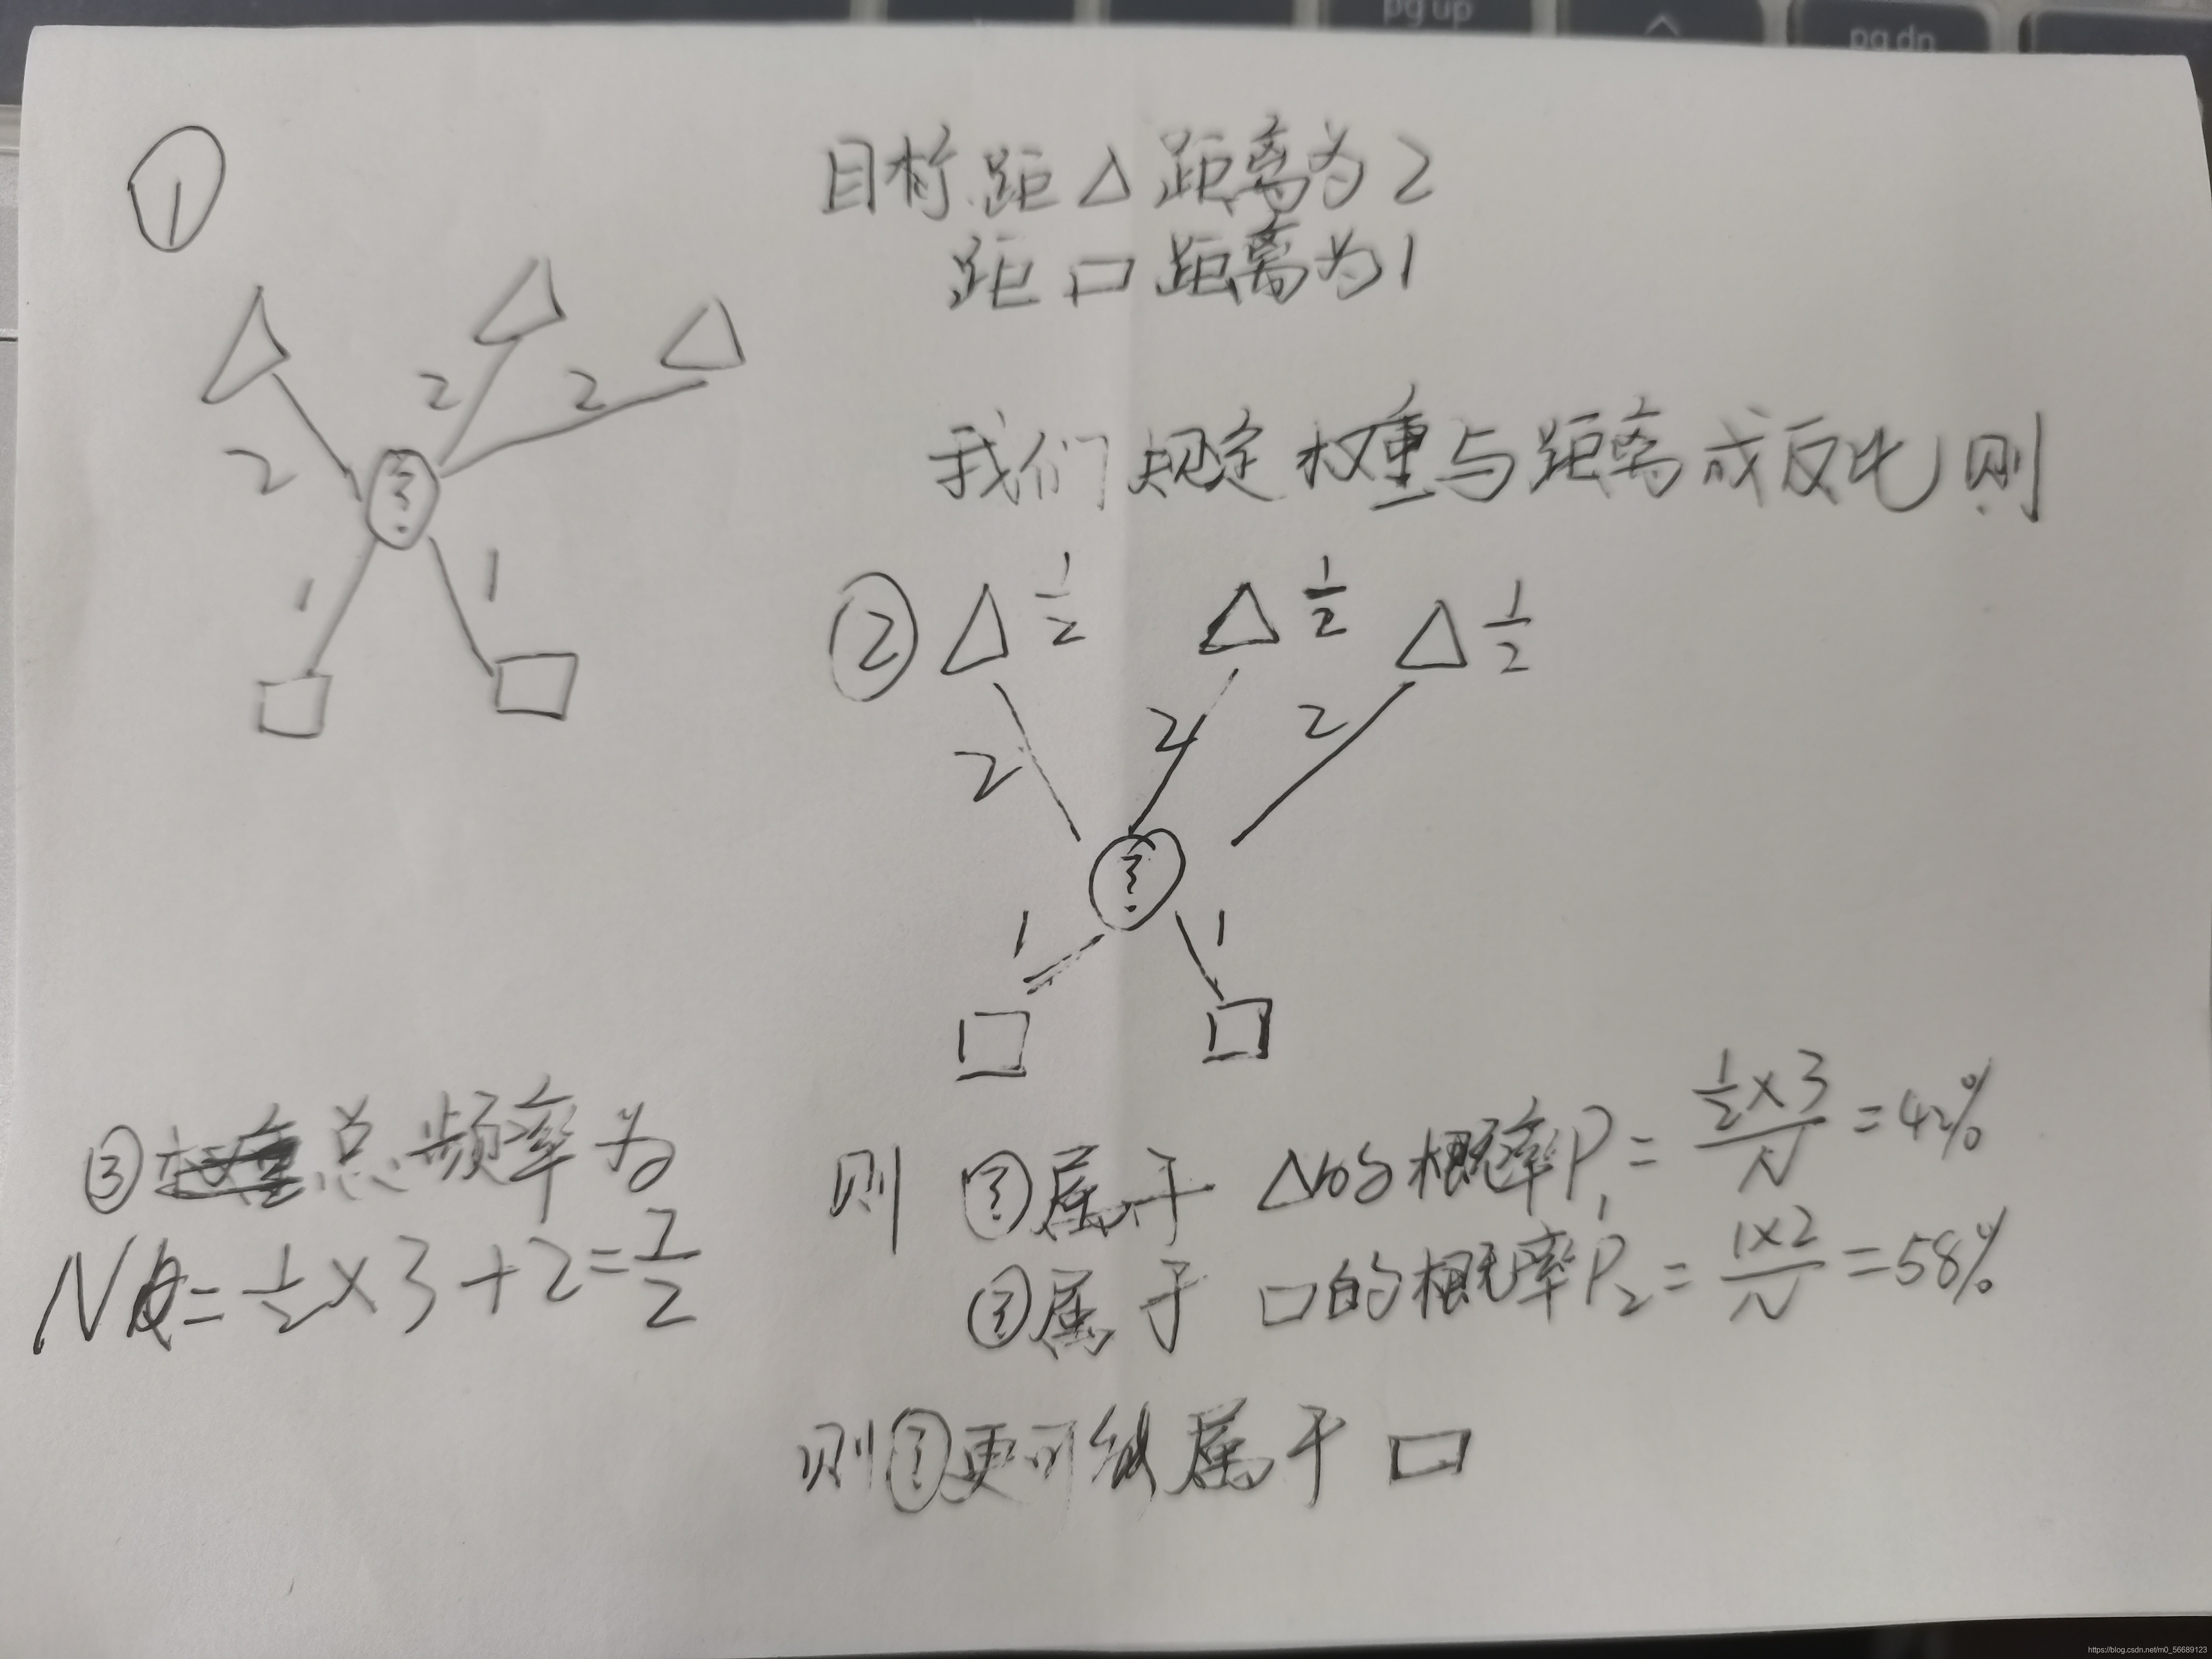 pg up
^
pg dn
①
目标距△距离为2
距口距离为1
2 2 2
1 1
我们规定权重与距离成反比则
② △ 1/2 △ 1/2 △ 1/2
2 2 2
?
1 1
1 1
③ 总频率为
N = 1/2 × 3 + 2 = 7/2
则 ? 属于 △的概率P₁ = (1/2 × 3)/N = 42%
? 属于 口的概率P₂ = (1×2)/N = 58%
则 ? 更可能属于 口
https://blog.csdn.net/m0_56689123